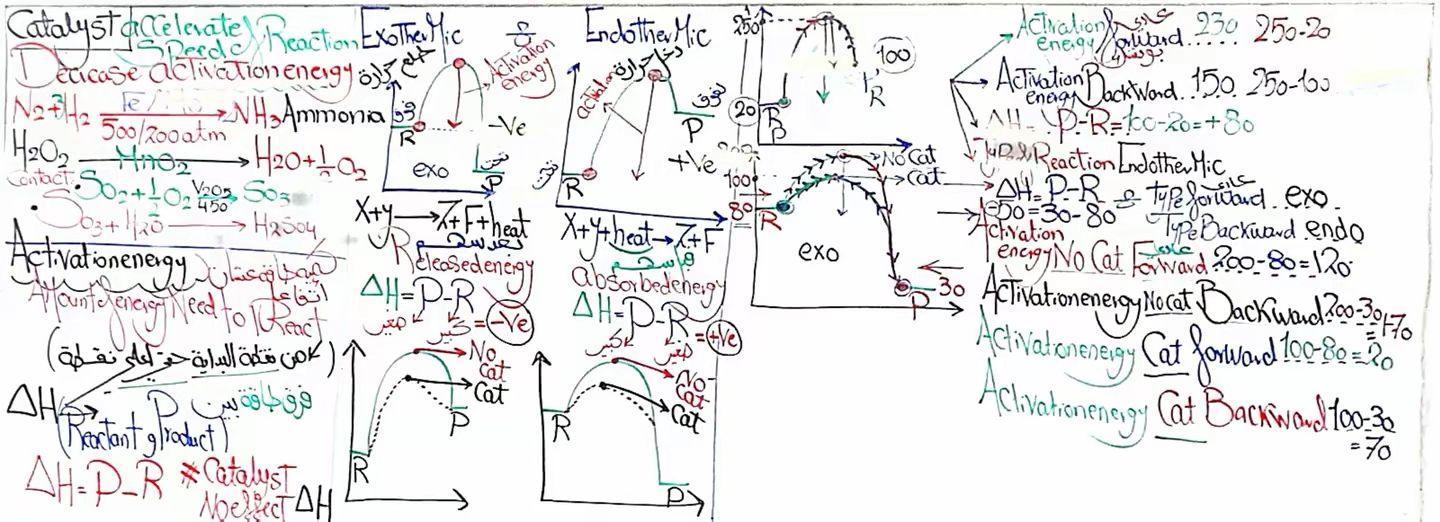 Catalyst accelerate
Speed of Reaction
Decrease activation energy
N2+3H2 Fe 500/200atm NH3 Ammonia
H2O2 MnO2 H2O+½O2
Contact:
SO2+½O2 V2O5 450 SO3
SO3+H2O → H2SO4
Activation energy
Amount energy Need to React
(من نقطة البداية حتى اعلى نقطة)
ΔH → P فرق طاقة بين
(Reactant و Product)
ΔH=P-R
*Catalyst
No effect ΔH
ExotherMic &
Activation energy
فوق
R
-Ve
exo
تحت
P
X+y → Z+F+heat
Released energy
ΔH=P-R
صغير كبير
= -Ve
No Cat
Cat
P
R
EndotherMic
فوق
P
+Ve
تحت
R
X+y+heat → Z+F
absorbed energy
ΔH=P-R
كبير صغير
= +Ve
No Cat
Cat
R
P
250
100
20
R
P
R
200
100
80
R
No Cat
Cat
exo
30
P
Activation energy forward .... 230 250-20
Activation energy Backward .. 150 250-100
ΔH= P-R=100-20=+80
Type Reaction EndotherMic
ΔH=P-R & Type forward .. exo
-50=30-80 Type Backward .. endo
Activation energy No Cat Forward 200-80=120
Activation energy No cat Backward 200-30=170
Activation energy Cat forward 100-80=20
Activation energy Cat Backward 100-30
=70